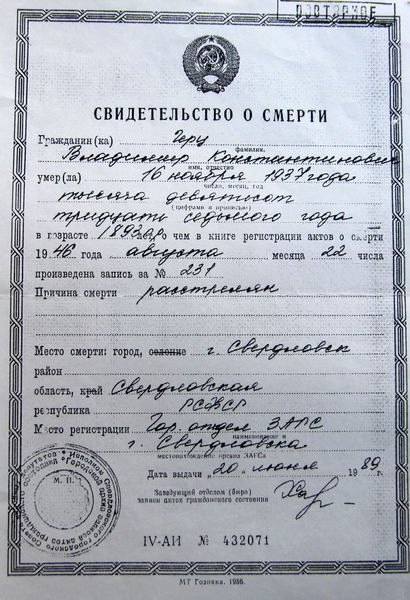 ПОВТОРНОЕ
СВИДЕТЕЛЬСТВО О СМЕРТИ
Гражданин(ка) Герц
фамилия,
Владимир Константинович
имя, отчество
умер(ла) 16 ноября 1937 года
число, месяц, год
тысяча девятьсот
(цифрами и прописью)
тридцать седьмого года
в возрасте 1893 о чем в книге регистрации актов о смерти
19 46 года августа месяца 22 числа
произведена запись за № 231
Причина смерти расстрелян
Место смерти: город, селение г. Свердловск
район
область, край Свердловская
республика РСФСР
Место регистрации Гор. отдел ЗАГС
наименование и
г. Свердловска
местонахождение органа ЗАГСа
Дата выдачи „20" июня 1989 г.
Заведующий отделом (бюро)
записи актов гражданского состояния
М. П.
IV-АИ № 432071
МТ Гознака. 1986.